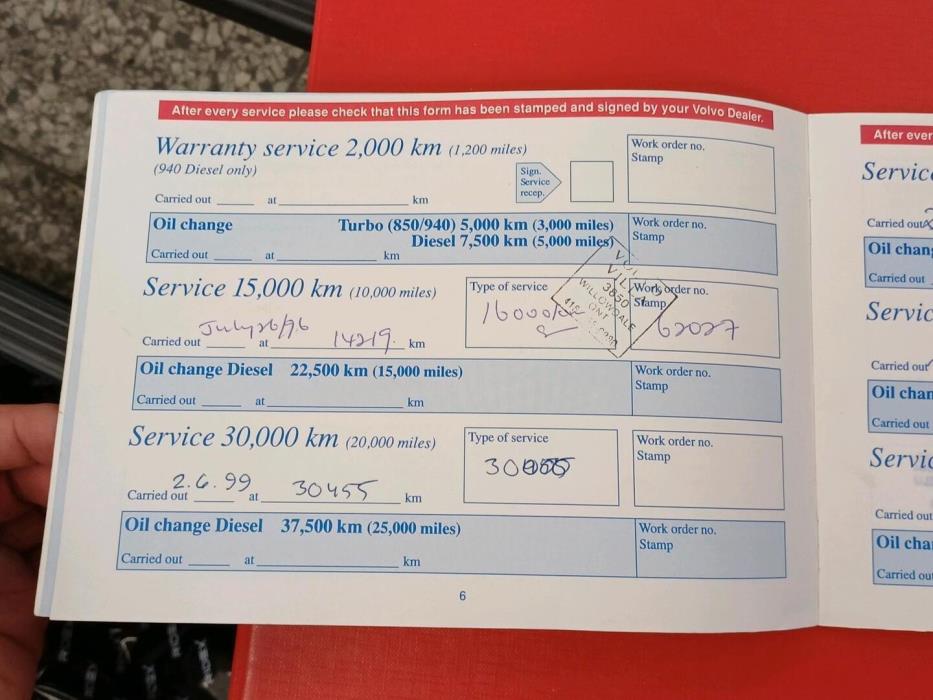 After every service please check that this form has been stamped and signed by your Volvo Dealer.
Warranty service 2,000 km (1,200 miles)
(940 Diesel only)
Sign.
Service
recep.
Work order no.
Stamp
Carried out at km
Oil change Turbo (850/940) 5,000 km (3,000 miles)
Diesel 7,500 km (5,000 miles)
Work order no.
Stamp
Carried out at km
Service 15,000 km (10,000 miles)
Type of service
Work order no.
Stamp
VILLA
3850
WILLOWDALE
ONT
62027
July 26/96 14219.
Carried out at km
Oil change Diesel 22,500 km (15,000 miles)
Work order no.
Stamp
Carried out at km
Service 30,000 km (20,000 miles)
Type of service
Work order no.
Stamp
2.6.99 30455
Carried out at km
Oil change Diesel 37,500 km (25,000 miles)
Work order no.
Stamp
Carried out at km
6
After ever
Servic
Carried out
Oil chan
Carried out
Servic
Carried out
Oil chan
Carried out
Servic
Carried out
Oil cha
Carried ou